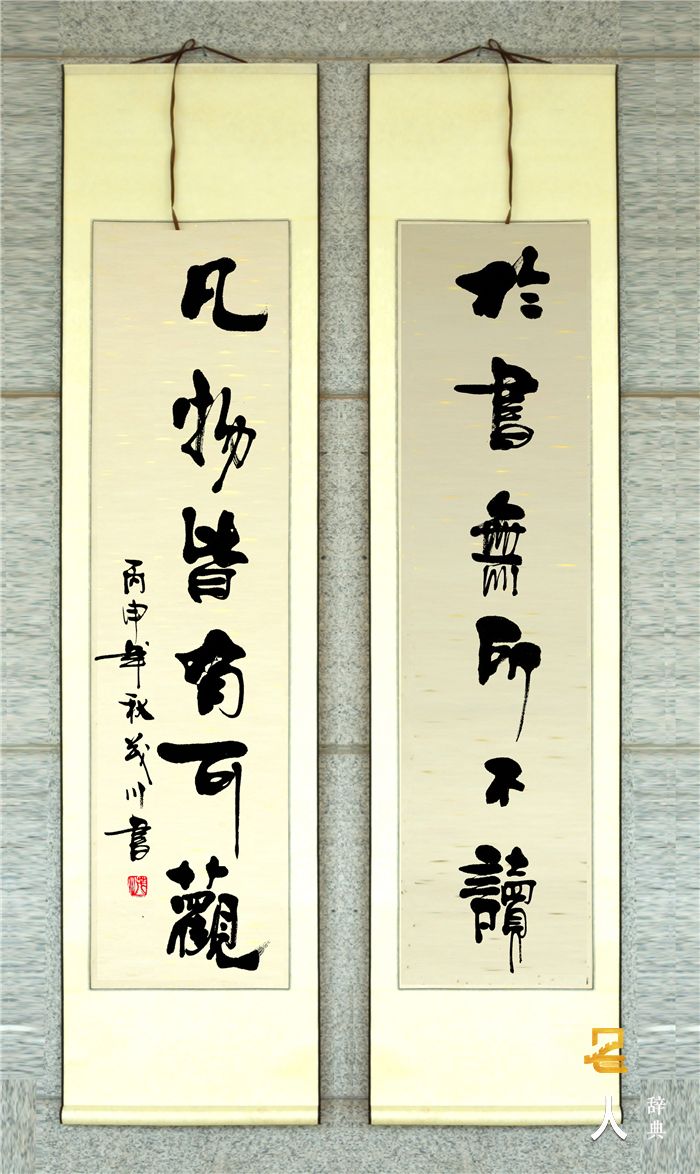 於書無所不讀
凡物皆有可觀
丙申年秋茂川書
名人
辞典